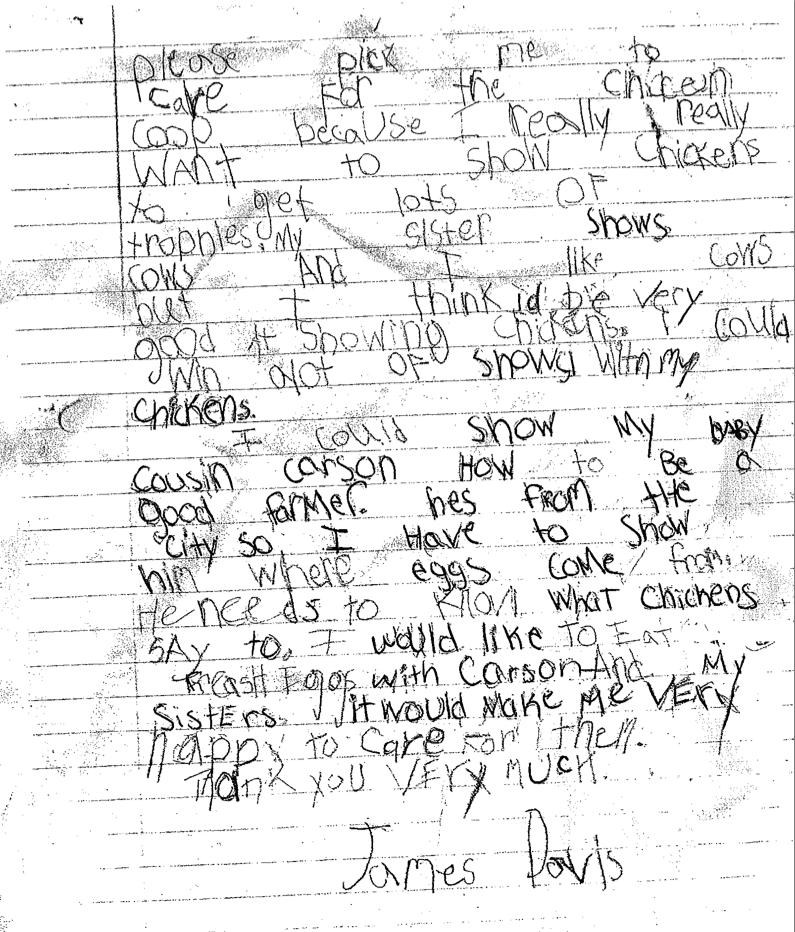 please pick me to
care For the chiceen
coop because I really really
WANt to show Chickens
to get lots OF
trophies. My sister shows
cows And I like cows
but I think id be very
good At showing chickens. I could
Win alot OF shows With my
chickens.
I could show My BABY
cousin carson How to Be a
good farmer. hes From the
city so I Have to Show
him where eggs come from.
He needs to know what chickens
SAy to. I would like To EAt
Freash Eggs with Carson And My
SistErs. it would make me VEry
happy to care For them.
Thank you VERy MUcH.
James Davis